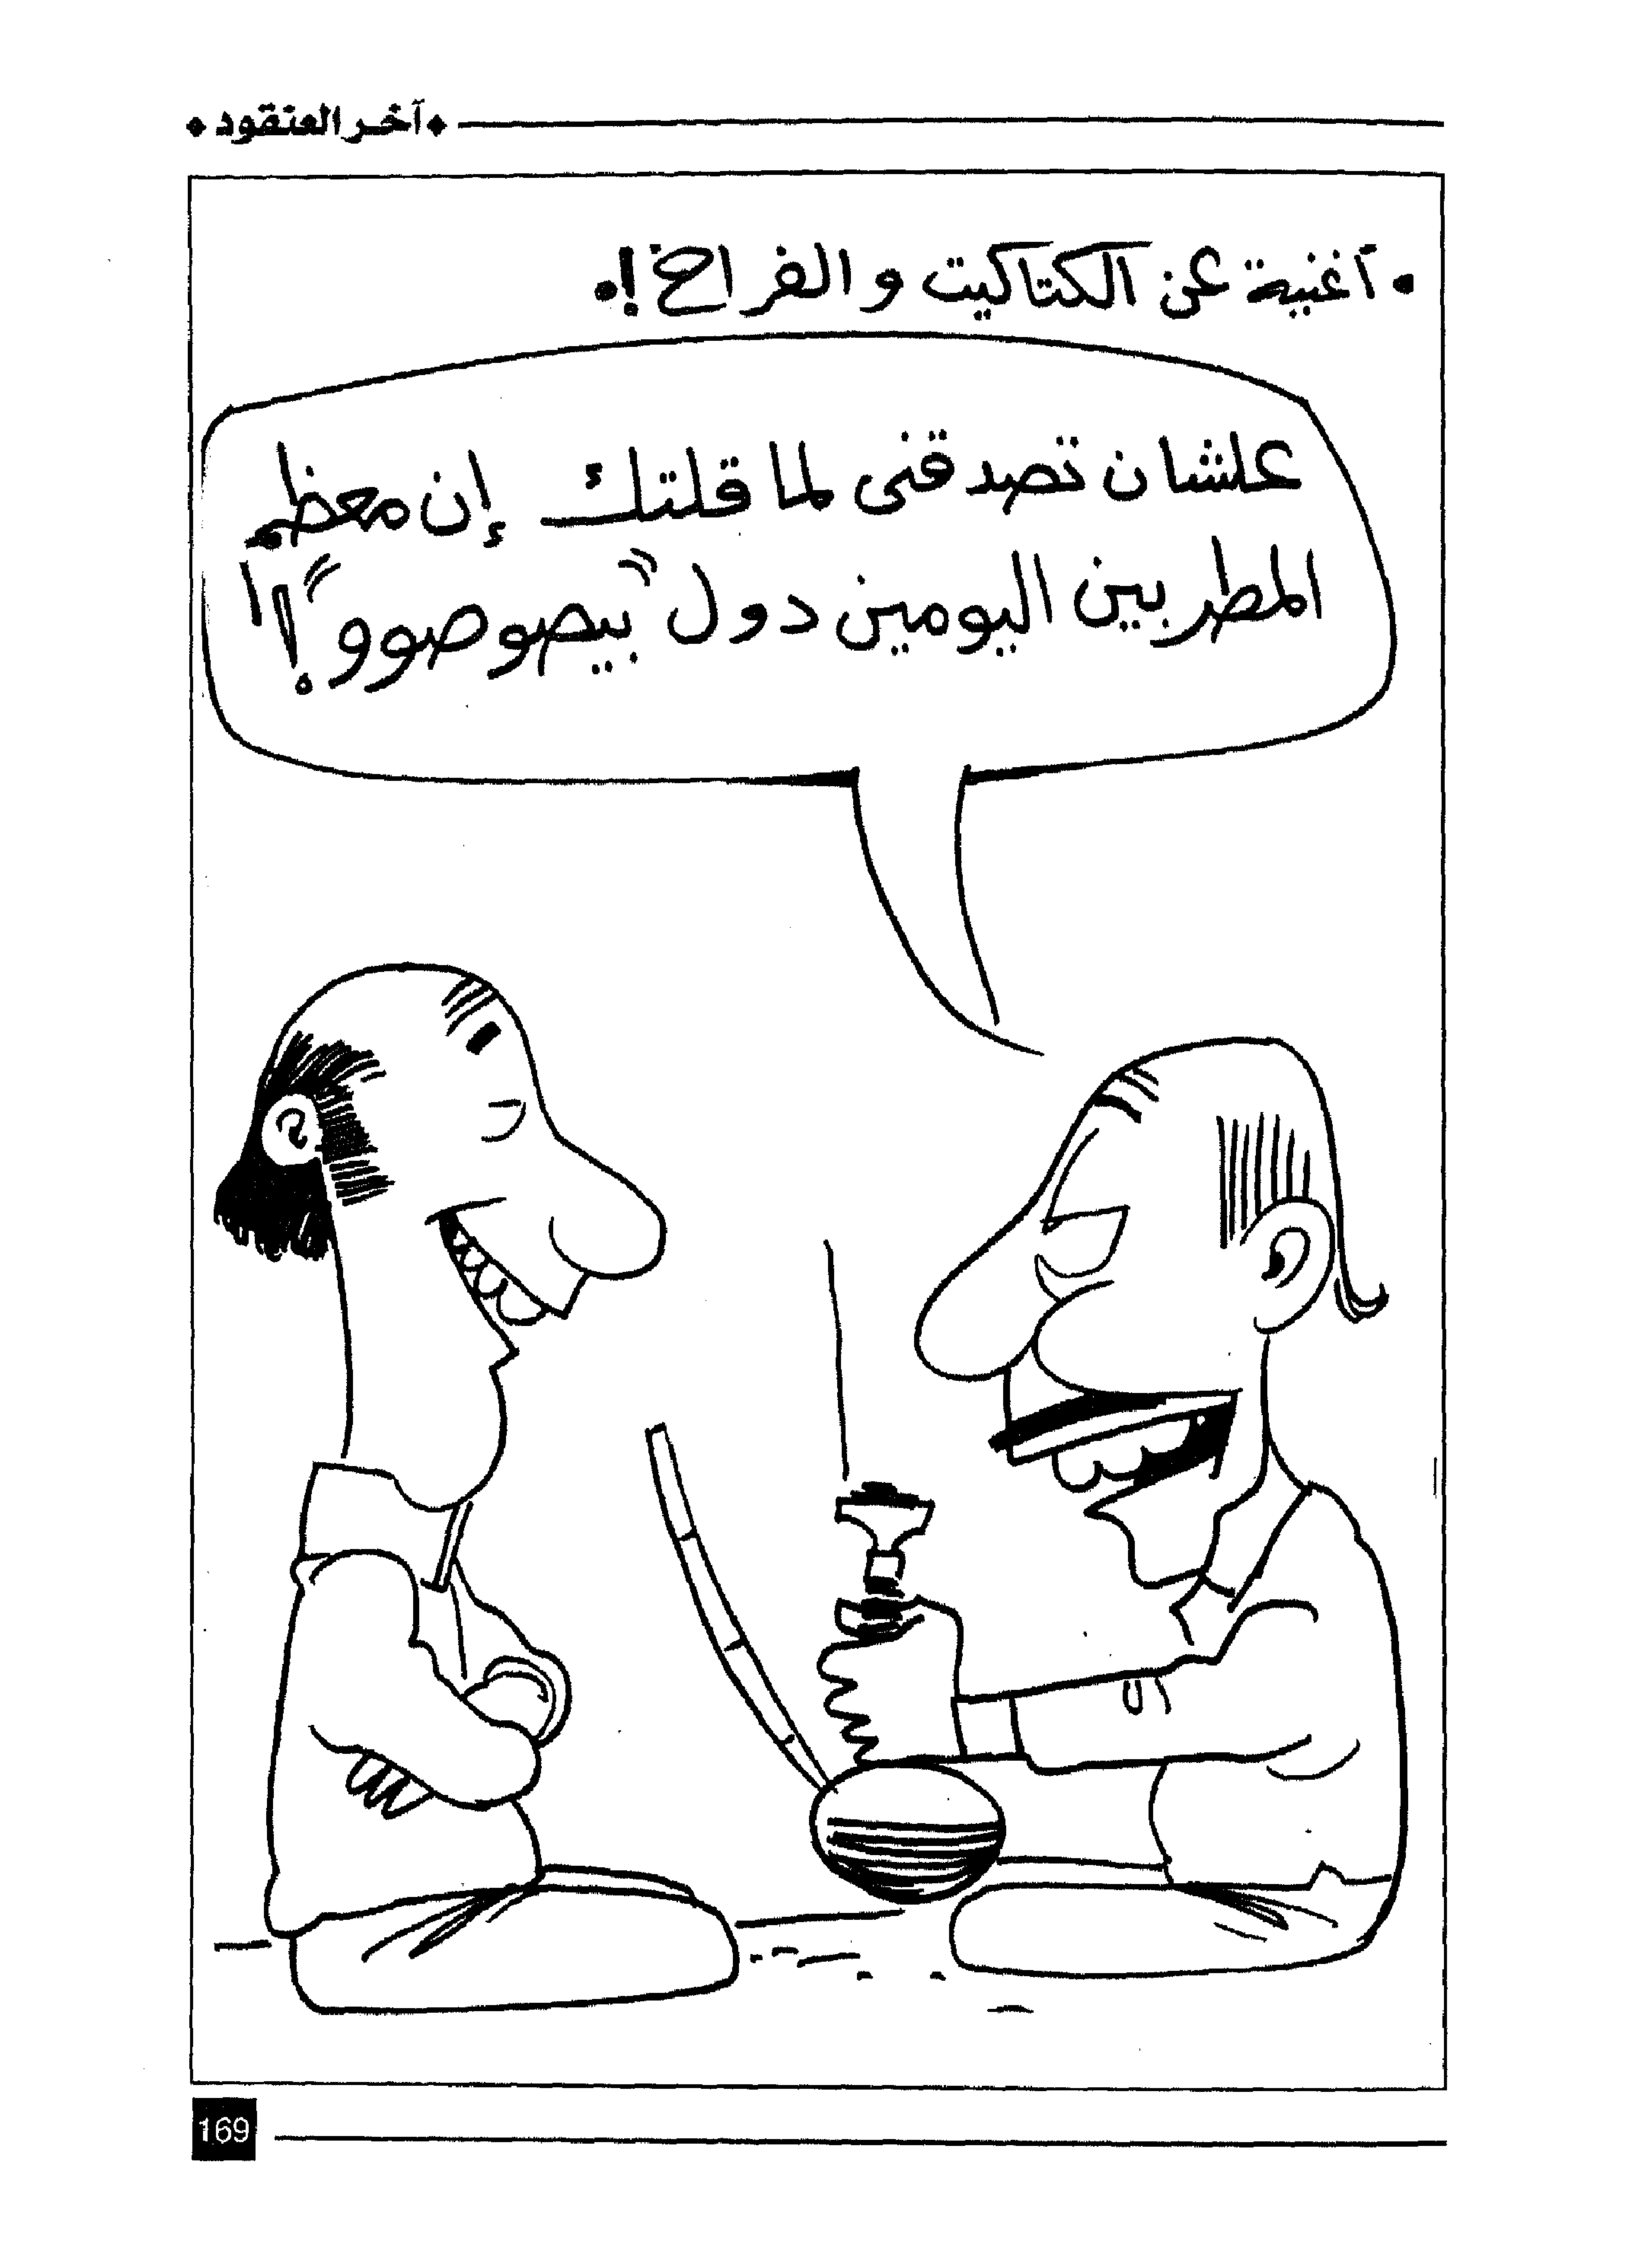 آخر العنقود
• أغنية عن الكتاكيت والفراخ!•
علشان تصدقنى لما قلتلك إن معظم
المطربين اليومين دول "بيصوصوو"!!
169